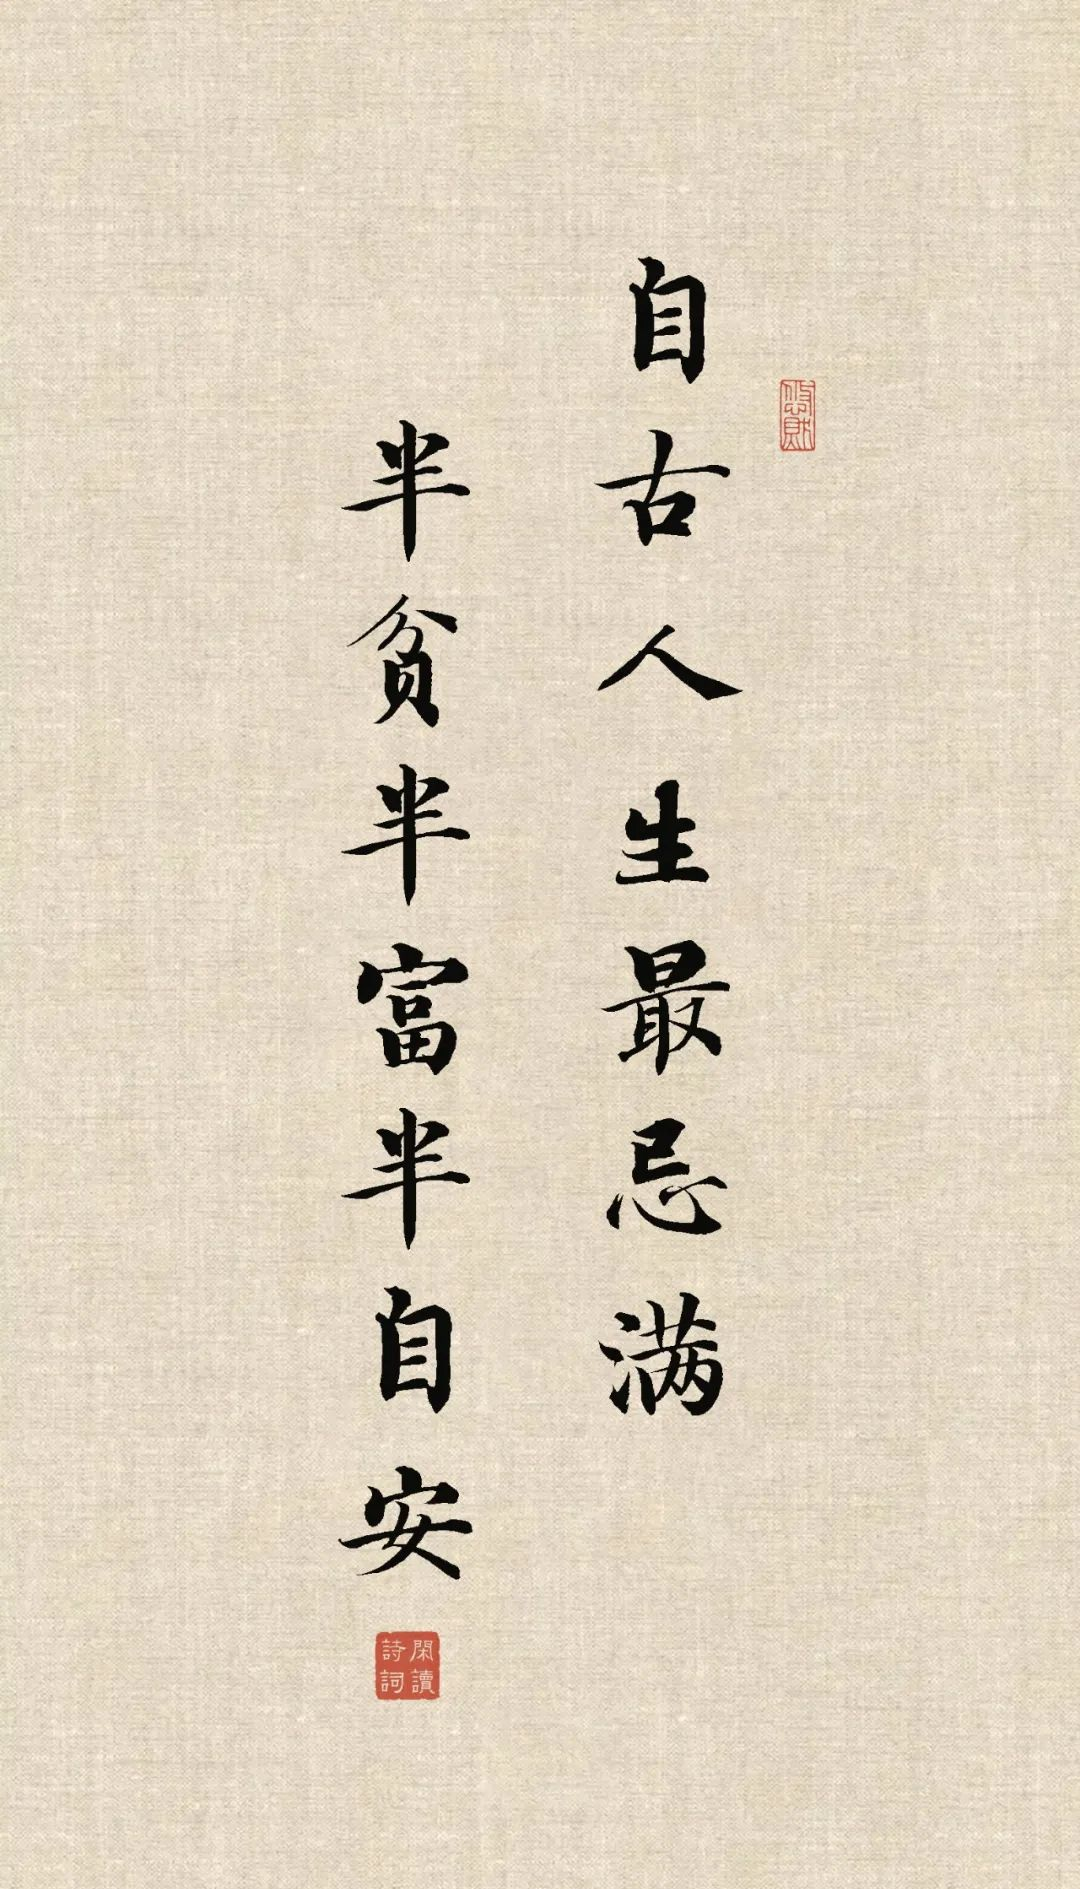 自古人生最忌满
半贫半富半自安
閑讀
詩詞